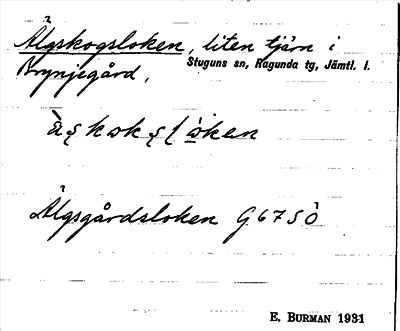 Älgskogsloken, liten tjärn i
Brynjegård, Stuguns sn, Ragunda tg, Jämtl. l.
Älgsgårdsloken G 67 SÖ
E. BURMAN 1931